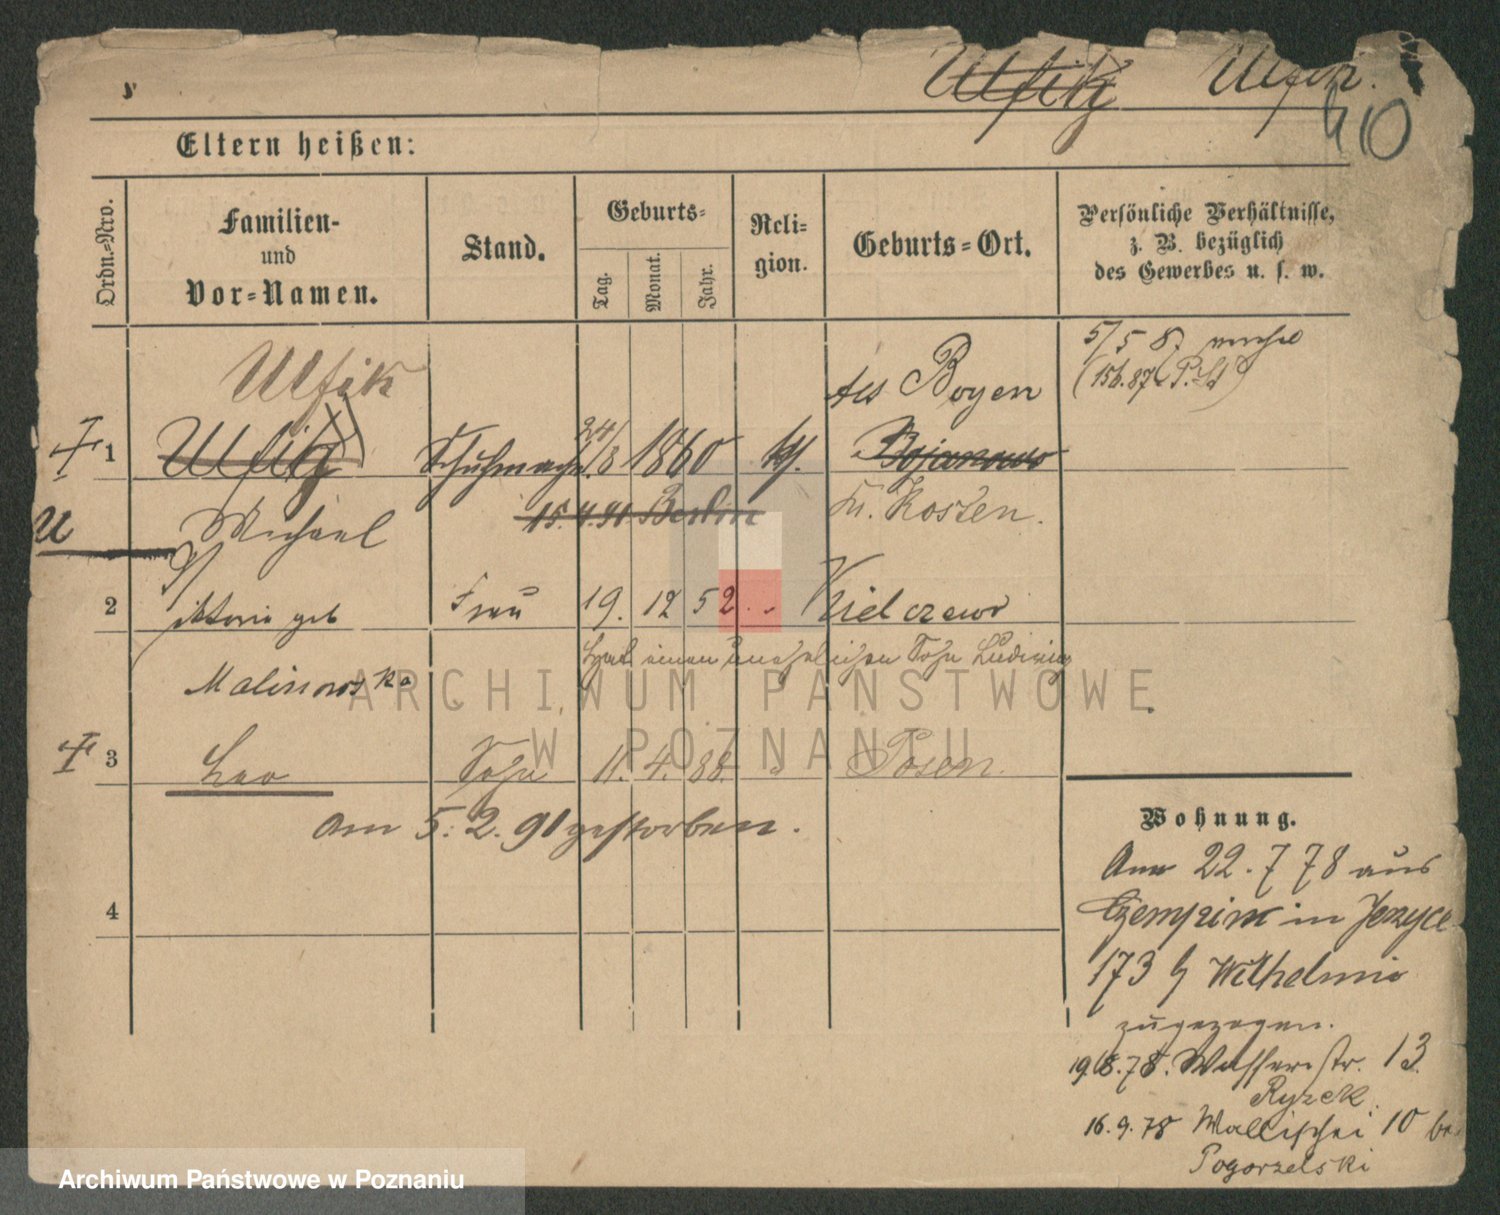 Ulfik.
40
Eltern heißen:
Ordn.-Nro.
Familien-
und
Vor-Namen.
Stand.
Geburts-
Tag.
Monat.
Jahr.
Reli-
gion.
Geburts-Ort.
Persönliche Verhältnisse,
z. B. bezüglich
des Gewerbes u. s. w.
Ulfik
Boyen
5/5 8.
1
24/3 1860
kth.
Bojanowo
Michael
15.4.91 Berlin
Kr. Kosten.
U
2
Viktoria geb
Frau
19. 12 52
Kielczewo
Malinowska
hat einen unehelichen Sohn Ludwig
3
Leo
Sohn
11. 4. 88.
Posen.
am 5. 2. 91 gestorben.
4
Wohnung.
Am 22. 7 78 aus
Czempin in Jerzyce
173 b Wilhelmi
zugezogen.
19.8.78. Wasserstr. 13.
Ryzek
16.9.78 Wallischei 10 be
Pogorzelski
ARCHIWUM PAŃSTWOWE
W POZNANIU
Archiwum Państwowe w Poznaniu